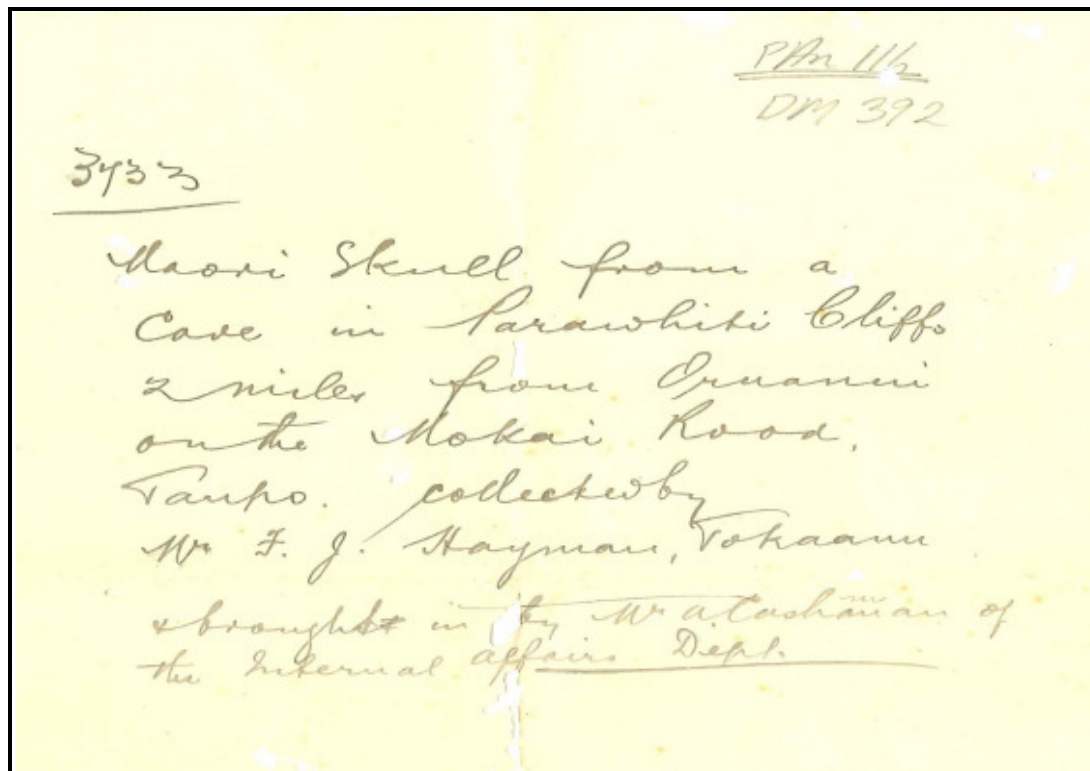 PAn 116
DM 392
3733
Maori Skull from a
Cave in Parawhiti Cliffs
2 miles from Oruanui
on the Mokai Road,
Taupo. collected by
Mr F. J. Hayman, Tokaanu
& brought in by Mr A. Cashman of
the Internal Affairs Dept.